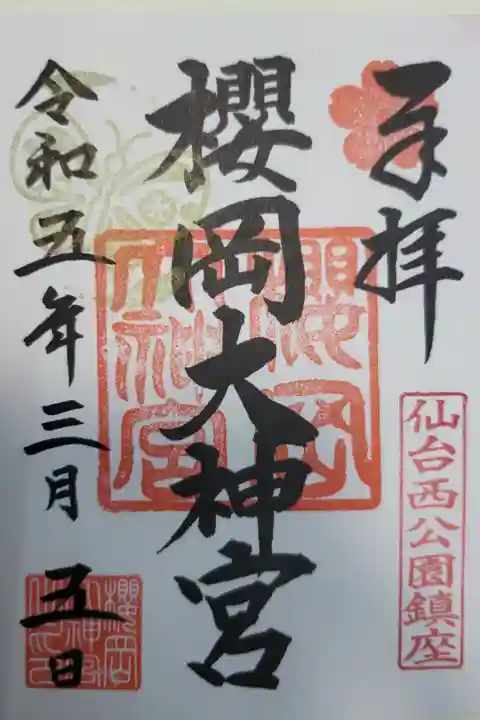 奉拝
仙台西公園鎮座
櫻岡大神宮
令和五年三月五日
櫻岡大神宮